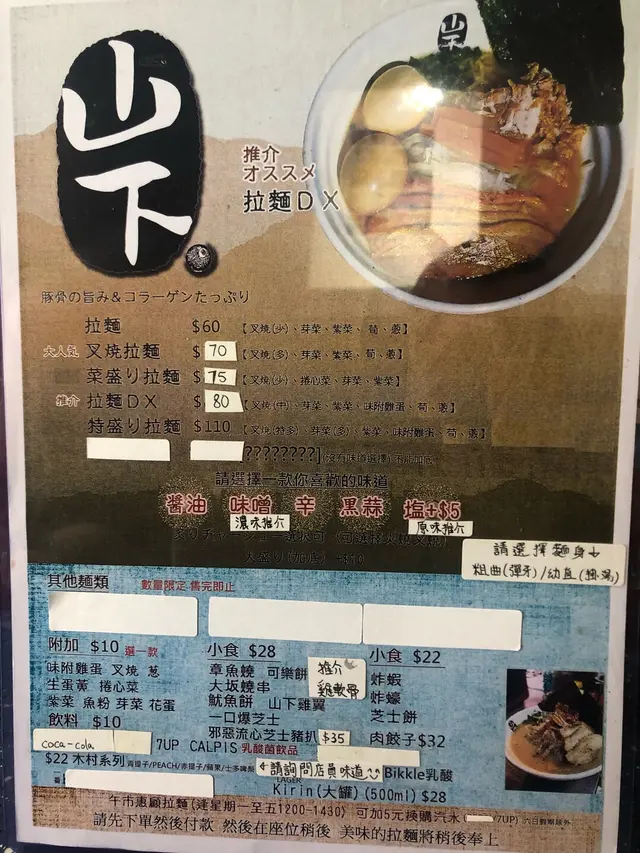 山下
山下
推介
オススメ
拉麵DX
豚骨の旨み&コラーゲンたっぷり
拉麵 $60 【叉燒(少)、芽菜、紫菜、荀、蔥】
大人気 叉焼拉麵 $70 【叉燒(多)、芽菜、紫菜、荀、蔥】
菜盛り拉麵 $75 【叉燒(少)、捲心菜、芽菜、紫菜】
推介 拉麵DX $80 【叉燒(中)、芽菜、紫菜、味附雞蛋、荀、蔥】
特盛り拉麵 $110 【叉燒(特多)、芽菜(多)、紫菜、味附雞蛋、荀、蔥】
????????](沒有味道選擇)
請選擇一款你喜歡的味道
醬油 味噌 辛 黒蒜 塩+$5
濃味推介 原味推介
請選擇麵身↓
粗曲(彈牙)/幼直(掛湯)
其他麵類 數量限定 售完即止
附加 $10 選一款
味附雞蛋 叉燒 葱
生蛋黃 捲心菜
紫菜 魚粉 芽菜 花蛋
飲料 $10
小食 $28
章魚燒 可樂餅
推介
雞軟骨
大坂燒串
魷魚餅 山下雞翼
一口爆芝士
邪惡流心芝士豬扒 $35
小食 $22
炸蝦
炸蠔
芝士餅
肉餃子$32
coca-cola 7UP CALPIS 乳酸菌飲品
$22 木村系列 青提子/PEACH/赤提子/蘋果/士多啤梨
←請詢問店員味道 Bikkle乳酸
LAGER
Kirin(大罐)(500ml) $28
午市惠顧拉麵(逢星期一至五1200-1430) 可加5元換購汽水( /7UP) 六日假期除外
請先下單然後付款 然後在座位稍後 美味的拉麵將稍後奉上